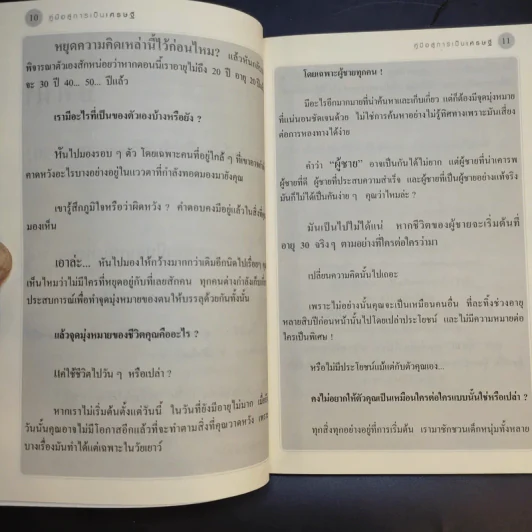 10 คู่มือสู่การเป็นเศรษฐี
หยุดความคิดเหล่านี้ไว้ก่อนไหม? แล้วหันกลับ
พิจารณาตัวเองสักหน่อยว่าหากตอนนี้เราอายุไม่ถึง 20 ปี อายุ 20
จะ 30 ปี 40... 50... ปีแล้ว
เรามีอะไรที่เป็นของตัวเองบ้างหรือยัง ?
หันไปมองรอบ ๆ ตัว โดยเฉพาะคนที่อยู่ใกล้ ๆ ที่เขาอาจ
คาดหวังอะไรบางอย่างอยู่ในแววตาที่กำลังทอดมองมายังคุณ
เขารู้สึกภูมิใจหรือว่าผิดหวัง ? คำตอบคงมีอยู่แล้วในสิ่งที่คุณ
มองเห็น
เอาล่ะ... หันไปมองให้กว้างมากกว่าเดิมอีกนิดไปเรื่อยๆ
เห็นไหมว่าไม่มีใครที่หยุดอยู่กับที่เลยสักคน ทุกคนต่างกำลังเก็บเกี่ยว
ประสบการณ์เพื่อทำจุดมุ่งหมายของตนให้บรรลุด้วยกันทั้งนั้น
แล้วจุดมุ่งหมายของชีวิตคุณคืออะไร ?
แค่ใช้ชีวิตไปวัน ๆ หรือเปล่า ?
หากเราไม่เริ่มต้นตั้งแต่วันนี้ ในวันที่ยังมีอายุไม่มาก เมื่อ
วันนั้นคุณอาจไม่มีโอกาสอีกแล้วที่จะทำตามสิ่งที่คุณวาดหวัง เพราะ
บางเรื่องมันทำได้แต่เฉพาะในวัยเยาว์
คู่มือสู่การเป็นเศรษฐี 11
โดยเฉพาะผู้ชายทุกคน !
มีอะไรอีกมากมายที่น่าค้นหาและเก็บเกี่ยว แต่ก็ต้องมีจุดมุ่งหมาย
ที่แน่นอนชัดเจนด้วย ไม่ใช่การค้นหาอย่างไม่รู้ทิศทางเพราะมันเสี่ยง
ต่อการหลงทางได้ง่าย
คำว่า “ผู้ชาย” อาจเป็นกันได้ไม่ยาก แต่ผู้ชายที่น่าเคารพ
ผู้ชายที่ดี ผู้ชายที่ประสบความสำเร็จ และผู้ชายที่เป็นผู้ชายอย่างแท้จริง
มันก็ไม่ได้เป็นกันง่าย ๆ คุณว่าไหมล่ะ ?
มันเป็นไปไม่ได้แน่ หากชีวิตของผู้ชายจะเริ่มต้นที่
อายุ 30 จริงๆ ตามอย่างที่ใครต่อใครว่ามา
เปลี่ยนความคิดนั้นไปเถอะ
เพราะไม่อย่างนั้นคุณจะเป็นเหมือนคนอื่น ที่ละทิ้งช่วงอายุ
หลายสิบปีก่อนหน้านั้นไปโดยเปล่าประโยชน์ และไม่มีความหมายต่อ
ใครเป็นพิเศษ !
หรือไม่มีประโยชน์แม้แต่กับตัวคุณเอง...
คงไม่อยากให้ตัวคุณเป็นเหมือนใครต่อใครแบบนั้นใช่หรือเปล่า ?
ทุกสิ่งทุกอย่างอยู่ที่การเริ่มต้น เรามาชักชวนเด็กหนุ่มทั้งหลาย